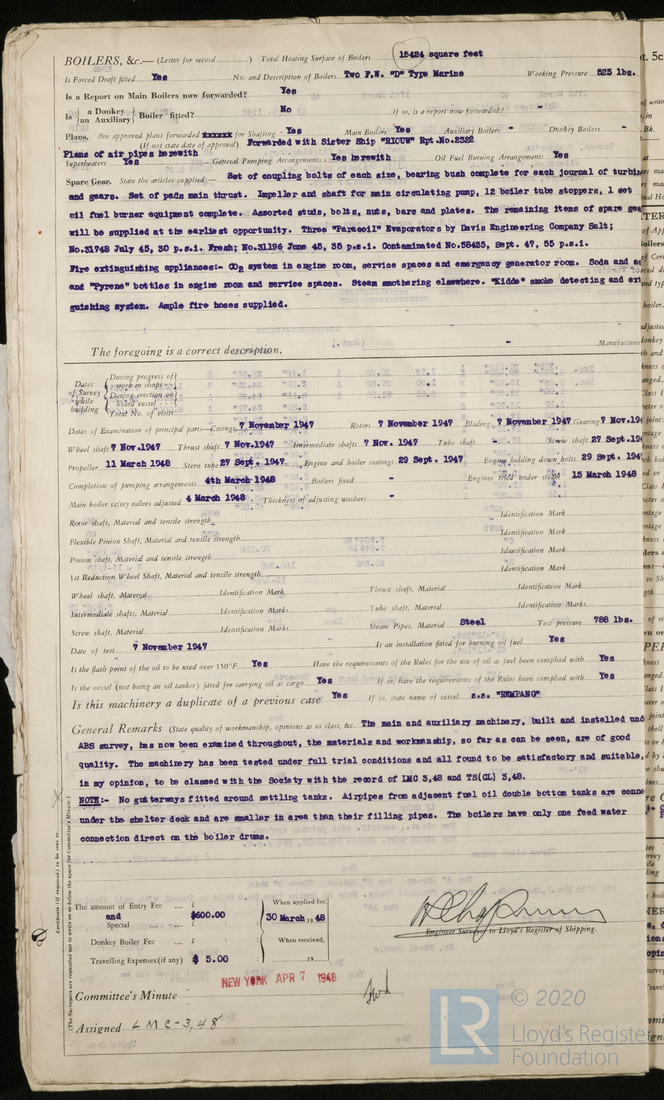 BOILERS, &c.— (Letter for record ) Total Heating Surface of Boilers 15424 square feet
Is Forced Draft fitted Yes No. and Description of Boilers Two F.W. "D" Type Marine Working Pressure 525 lbs.
Is a Report on Main Boilers now forwarded? Yes
Is { a Donkey / an Auxiliary } Boiler fitted? No If so, is a report now forwarded? -
Plans. Are approved plans forwarded xxxxxx for Shafting Yes Main Boilers Yes Auxiliary Boilers - Donkey Boilers -
(If not state date of approval) Forwarded with Sister Ship "RICUW" Rpt.No.2322
Plans of air pipes herewith
Superheaters Yes General Pumping Arrangements Yes herewith Oil Fuel Burning Arrangements Yes
Spare Gear. State the articles supplied:— Set of coupling bolts of each size, bearing bush complete for each journal of turbin
and gears. Set of pads main thrust. Impeller and shaft for main circulating pump, 12 boiler tube stoppers, 1 set
oil fuel burner equipment complete. Assorted studs, bolts, nuts, bars and plates. The remaining items of spare gea
will be supplied at the earliest opportunity. Three "Paracoil" Evaporators by Davis Engineering Company Salt;
No.31748 July 45, 30 p.s.i. Fresh; No.31196 June 45, 35 p.s.i. Contaminated No.58435, Sept. 47, 55 p.s.i.
Fire extinguishing appliances:- CO2 system in engine room, service spaces and emergency generator room. Soda and ac
and "Pyrene" bottles in engine room and service spaces. Steam smothering elsewhere. "Kidde" smoke detecting and ext
guishing system. Ample fire hoses supplied.
The foregoing is a correct description, - Manufacturer
Dates of Survey while building
During progress of work in shops - -
During erection on board vessel - - -
Total No. of visits
Dates of Examination of principal parts—Casings 7 November 1947 Rotors 7 November 1947 Blading 7 November 1947 Gearing 7 Nov.194
Wheel shaft 7 Nov.1947 Thrust shaft 7 Nov.1947 Intermediate shafts 7 Nov. 1947 Tube shaft - Screw shaft 27 Sept.194
Propeller 11 March 1948 Stern tube 27 Sept. 1947 Engine and boiler seatings 29 Sept. 1947 Engine holding down bolts 29 Sept. 194
Completion of pumping arrangements 4th March 1948 Boilers fixed - Engines tried under steam 15 March 1948
Main boiler safety valves adjusted 4 March 1948 Thickness of adjusting washers -
Rotor shaft, Material and tensile strength Identification Mark
Flexible Pinion Shaft, Material and tensile strength Identification Mark
Pinion shaft, Material and tensile strength Identification Mark
1st Reduction Wheel Shaft, Material and tensile strength Identification Mark
Wheel shaft, Material Identification Mark Thrust shaft, Material Identification Mark
Intermediate shafts, Material Identification Marks Tube shaft, Material Identification Marks
Screw shaft, Material Identification Marks Steam Pipes, Material Steel Test pressure 788 lbs.
Date of test 7 November 1947 Is an installation fitted for burning oil fuel Yes
Is the flash point of the oil to be used over 150°F. Yes Have the requirements of the Rules for the use of oil as fuel been complied with Yes
Is the vessel (not being an oil tanker) fitted for carrying oil as cargo Yes If so, have the requirements of the Rules been complied with Yes
Is this machinery a duplicate of a previous case Yes If so, state name of vessel s.s. "REMPANG"
General Remarks (State quality of workmanship, opinions as to class, &c. The main and auxiliary machinery, built and installed und
ABS survey, has now been examined throughout, the materials and workmanship, so far as can be seen, are of good
quality. The machinery has been tested under full trial conditions and all found to be satisfactory and suitable,
in my opinion, to be classed with the Society with the record of LMC 3,48 and TS(CL) 3,48.
NOTE:- No gutterways fitted around settling tanks. Airpipes from adjacent fuel oil double bottom tanks are conne
under the shelter deck and are smaller in area than their filling pipes. The boilers have only one feed water
connection direct on the boiler drums.
Certificate (if required) to be sent to
(The Surveyors are requested not to write on or below the space for Committee's Minute.)
The amount of Entry Fee ... £ When applied for,
and $600.00 30 March 1948
Special ... £
Donkey Boiler Fee ... £ When received,
Travelling Expenses (if any) $ 5.00 19
Engineer Surveyor to Lloyd's Register of Shipping.
NEW YORK APR 7 1948
Committee's Minute
Assigned LMC-3,48
LR © 2020
Lloyd's Register
Foundation